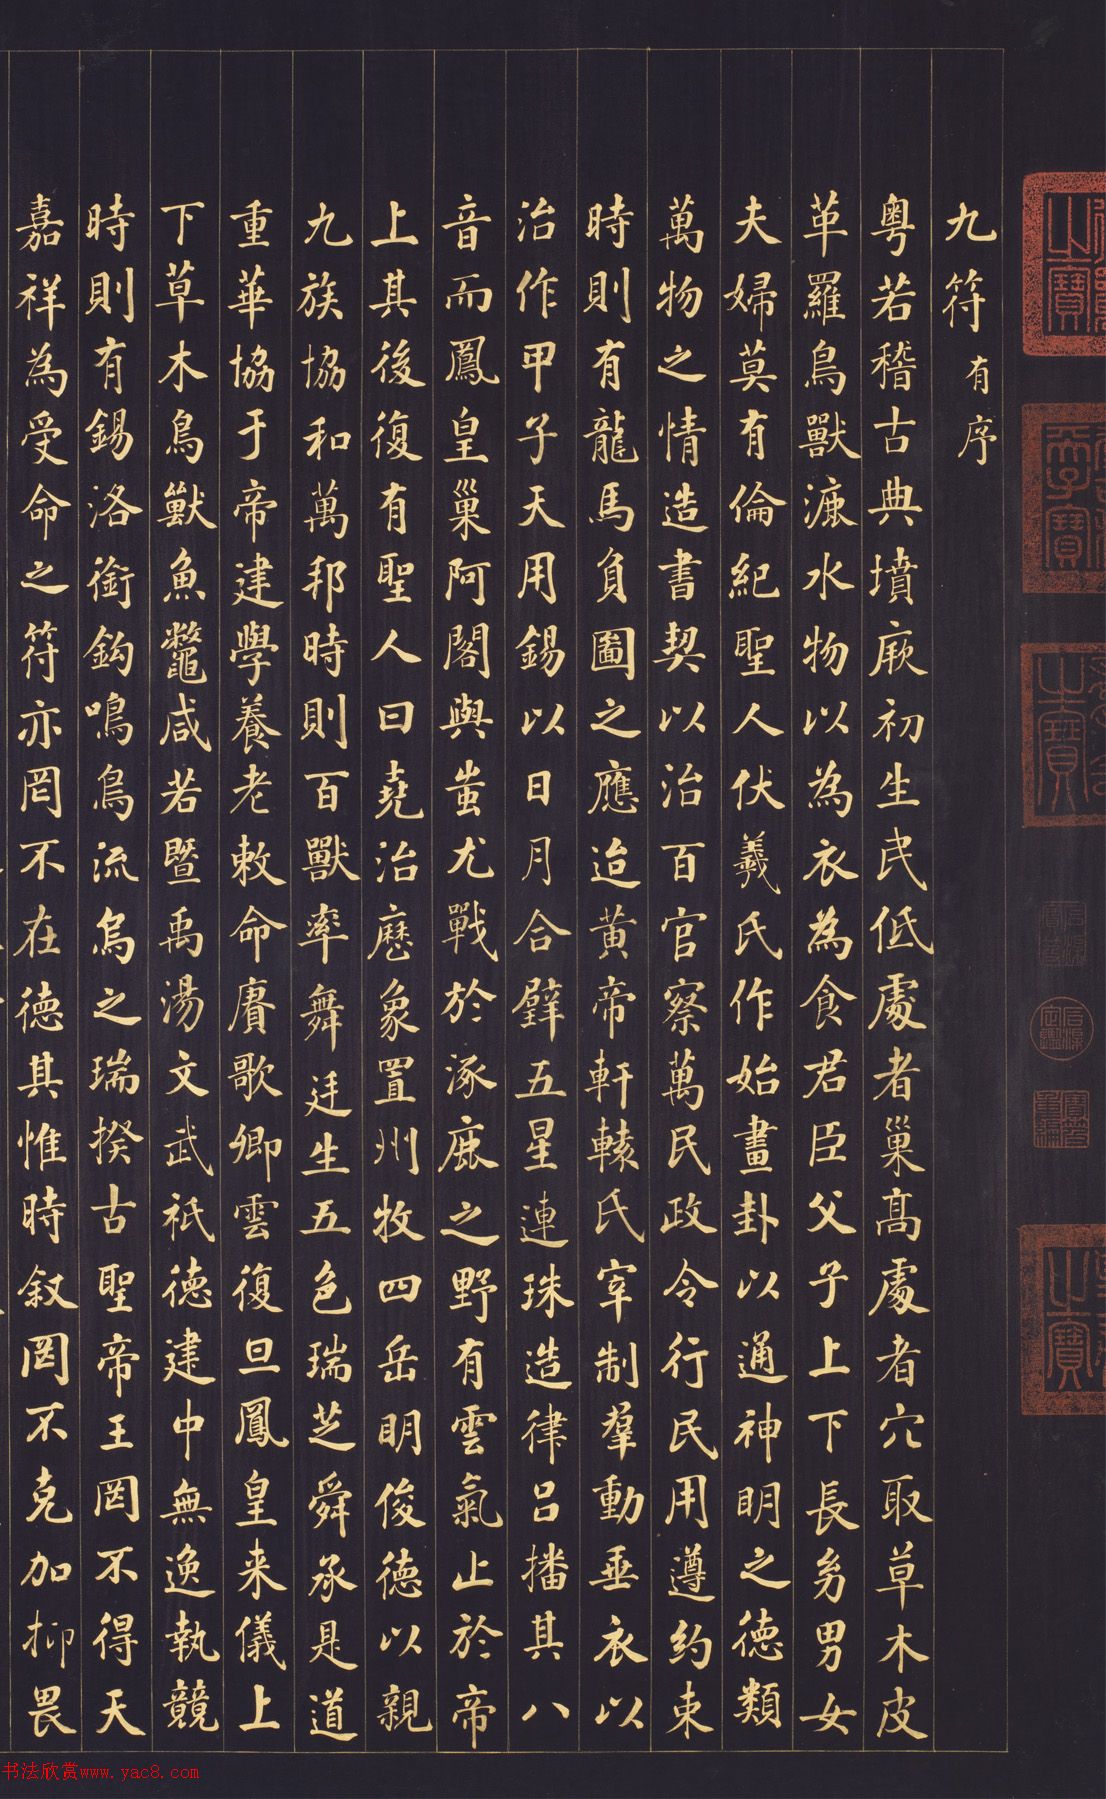 九符有序
粵若稽古典墳厥初生民低處者巢高處者穴取草木皮
革羅鳥獸漉水物以為衣為食君臣父子上下長幼男女
夫婦莫有倫紀聖人伏羲氏作始畫卦以通神明之德類
萬物之情造書契以治百官察萬民政令行民用遵約束
時則有龍馬負圖之應迨黃帝軒轅氏宰制羣動垂衣以
治作甲子天用錫以日月合璧五星連珠造律呂播其八
音而鳳皇巢阿閣與蚩尤戰於涿鹿之野有雲氣止於帝
上其後復有聖人曰堯治曆象置州牧四岳明俊德以親
九族協和萬邦時則百獸率舞廷生五色瑞芝舜承是道
重華協于帝建學養老敕命賡歌卿雲復旦鳳皇来儀上
下草木鳥獸魚鼈咸若暨禹湯文武祗德建中無逸執競
時則有錫洛銜鈎鳴鳥流烏之瑞揆古聖帝王罔不得天
嘉祥為受命之符亦罔不在德其惟時叙罔不克加抑畏
书法欣赏www.yac8.com